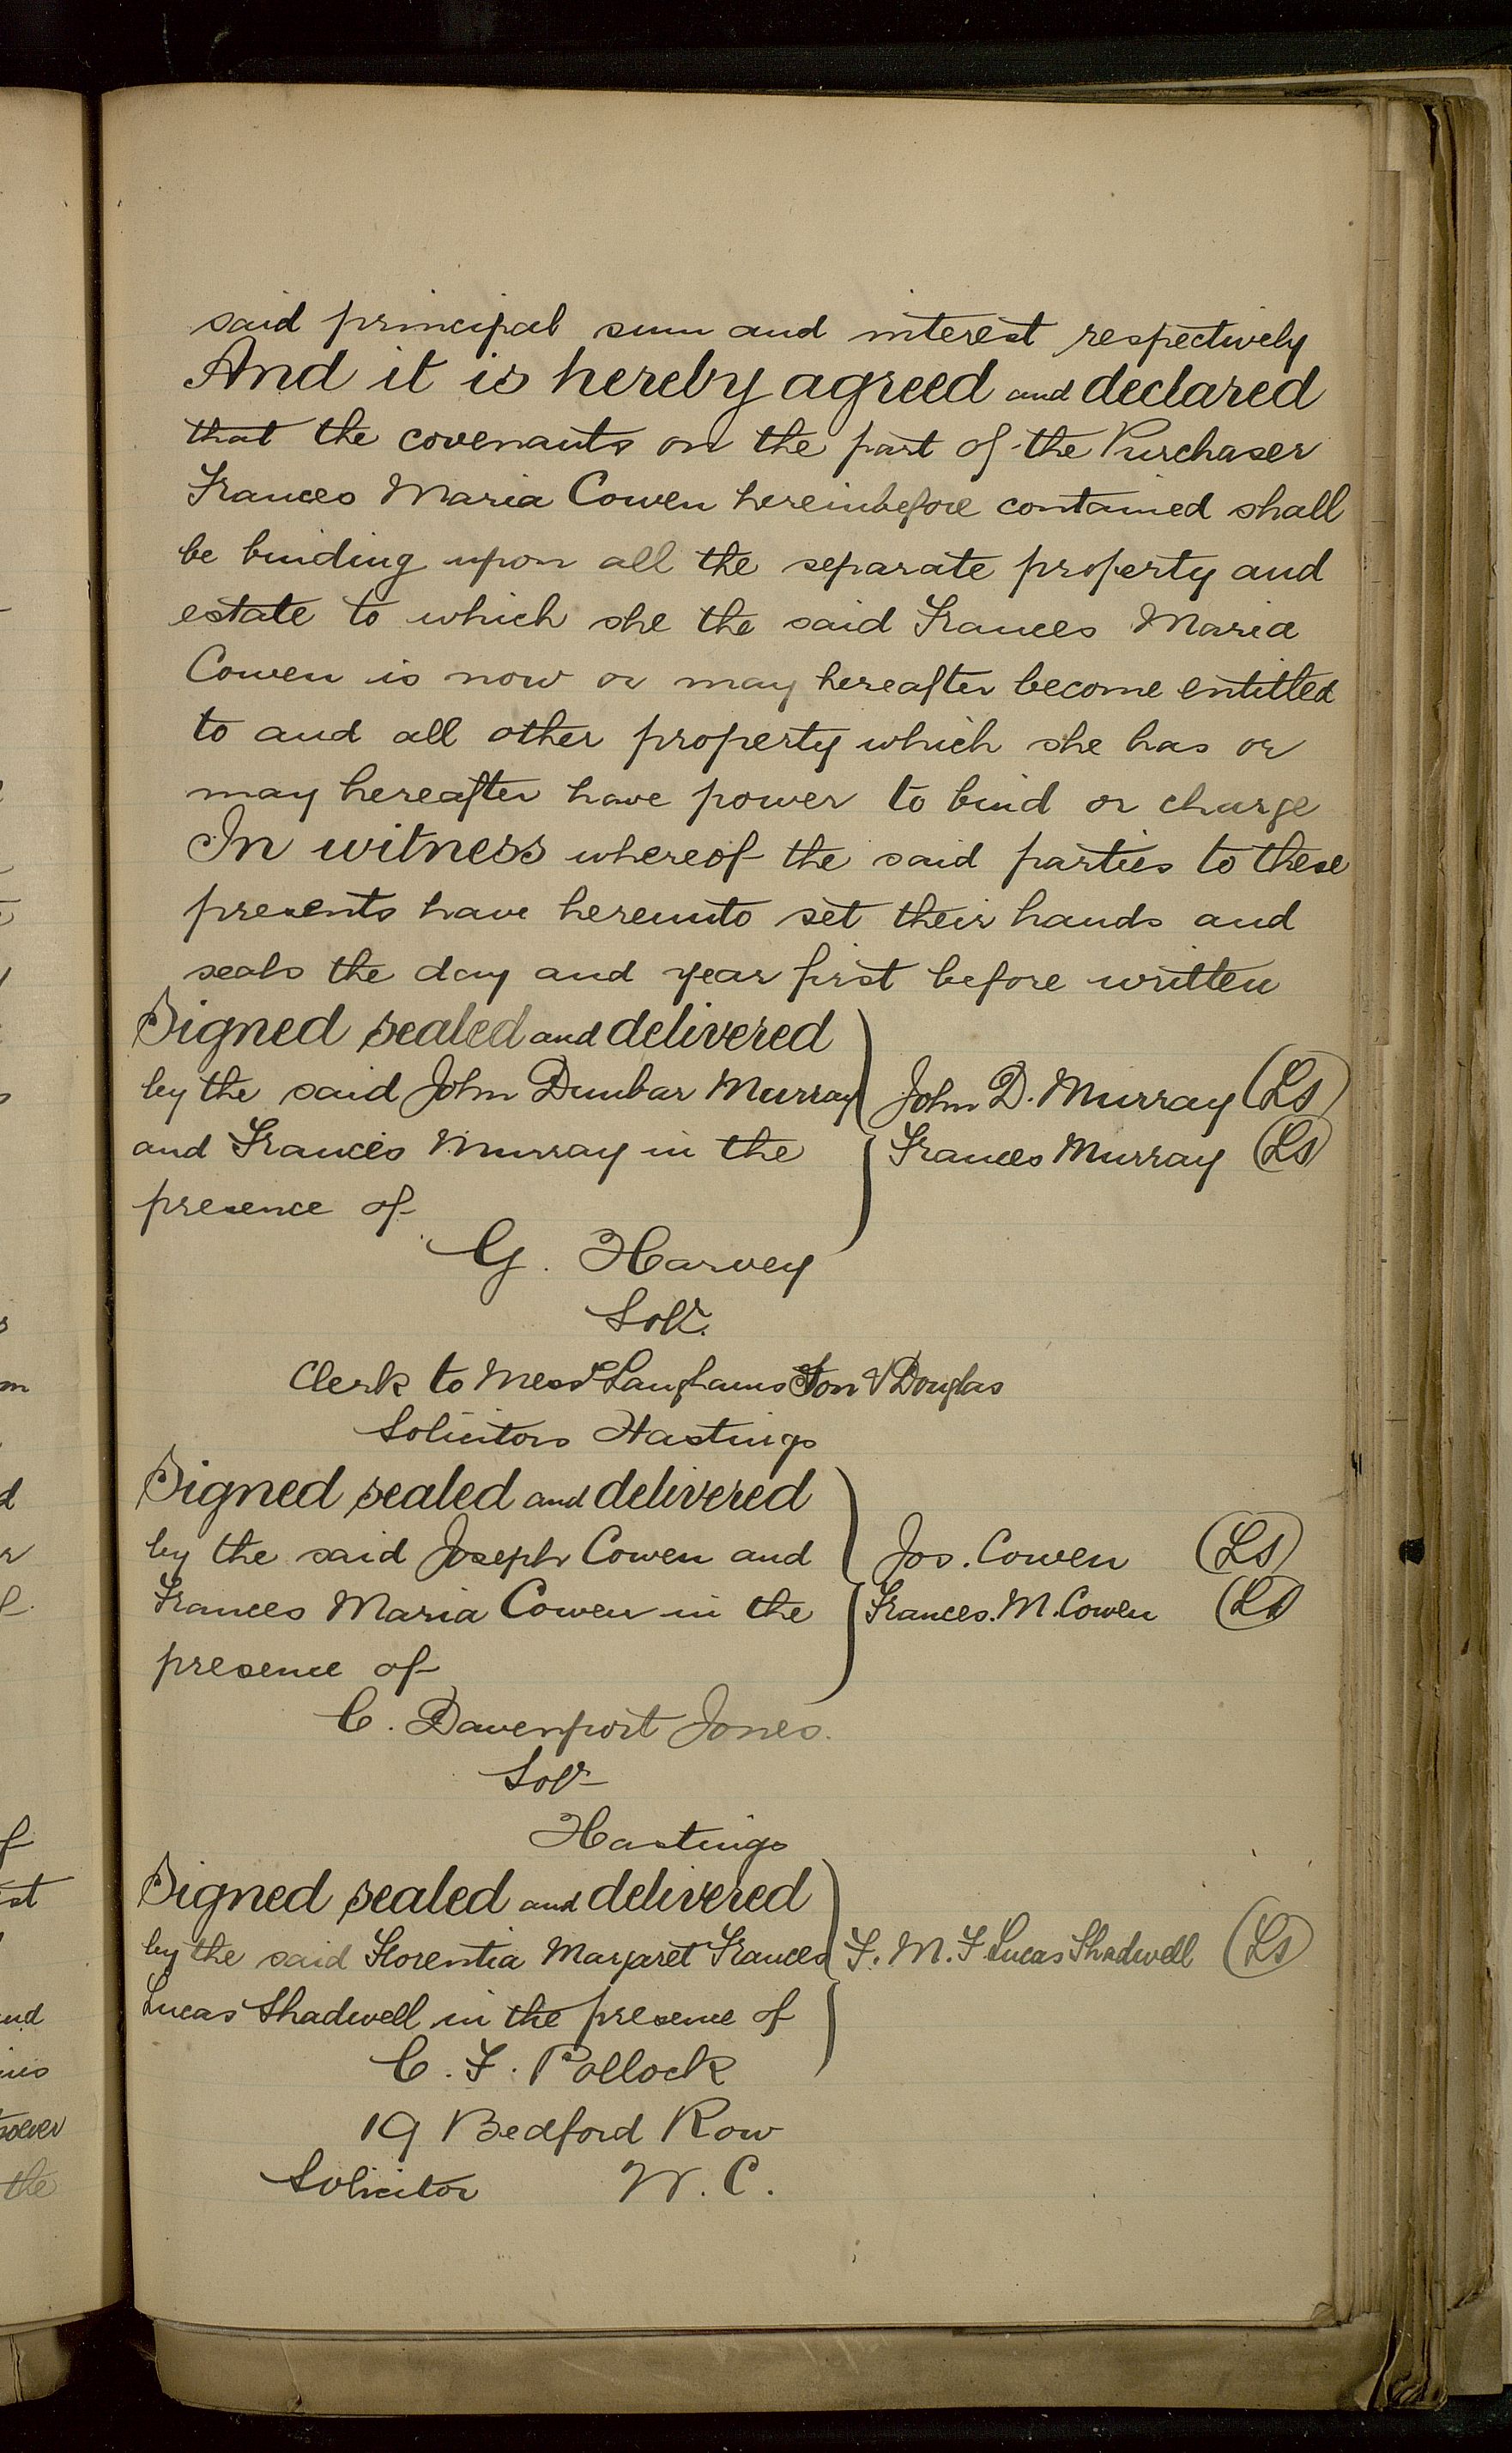 said principal sum and interest respectively
And it is hereby agreed and declared
that the covenants on the part of the Purchaser
Frances Maria Cowen hereinbefore contained shall
be binding upon all the separate property and
estate to which she the said Frances Maria
Cowen is now or may hereafter become entitled
to and all other property which she has or
may hereafter have power to bind or charge
In witness whereof the said parties to these
presents have hereunto set their hands and
seals the day and year first before written
Signed sealed and delivered
by the said John Dunbar Murray John D. Murray (LS)
and Frances Murray in the Frances Murray (LS)
presence of
G. Harvey
Solr.
Clerk to Messrs Langhams Son & Douglas
Solicitors Hastings
Signed sealed and delivered
by the said Joseph Cowen and Jos. Cowen (LS)
Frances Maria Cowen in the Frances. M. Cowen (LS)
presence of
C. Davenport Jones.
Solr
Hastings
Signed sealed and delivered
by the said Florentia Margaret Frances F. M. F. Lucas Shadwell (LS)
Lucas Shadwell in the presence of
C. F. Pollock
19 Bedford Row
Solicitor W. C.